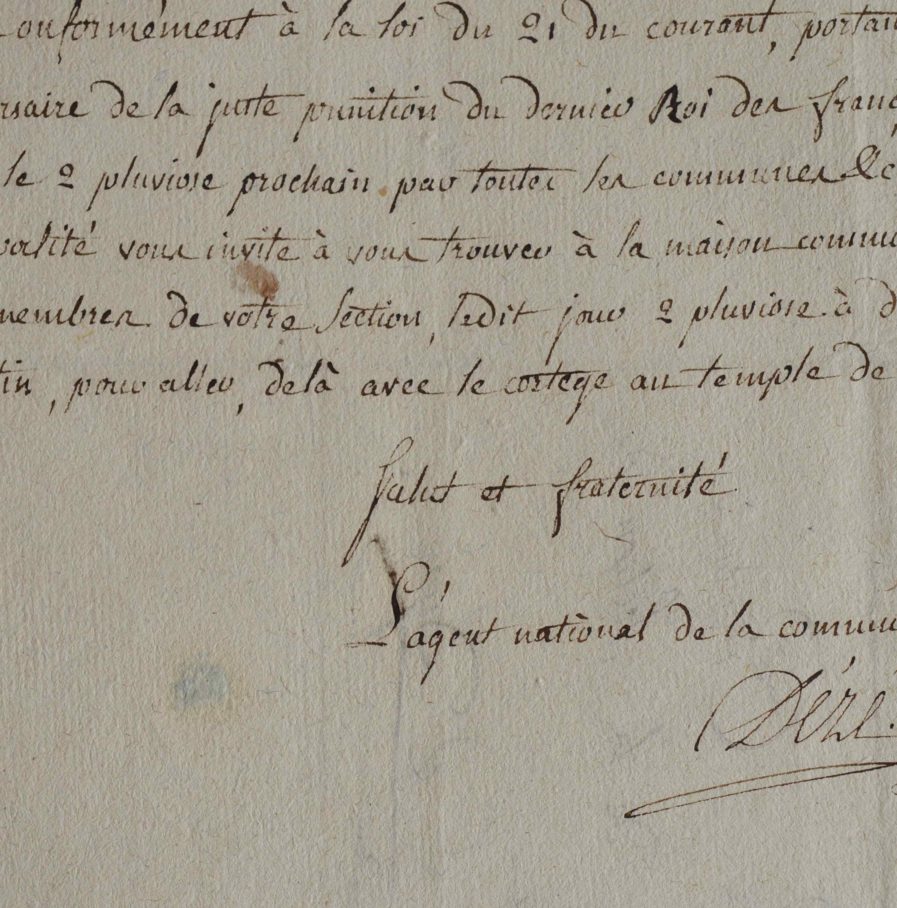 Conformément à la loi du 21 du courant, portan
rsaire de la juste punition du dernier Roi des franç
le 2 pluviose prochain par toutes les communes &c
palité vous invite à vous trouver à la maison commu
membres de votre Section, ledit jour 2 pluviose à d
tin, pour aller, delà avec le cortege au temple de
Salut et fraternité
L'agent national de la commu
Dézé.